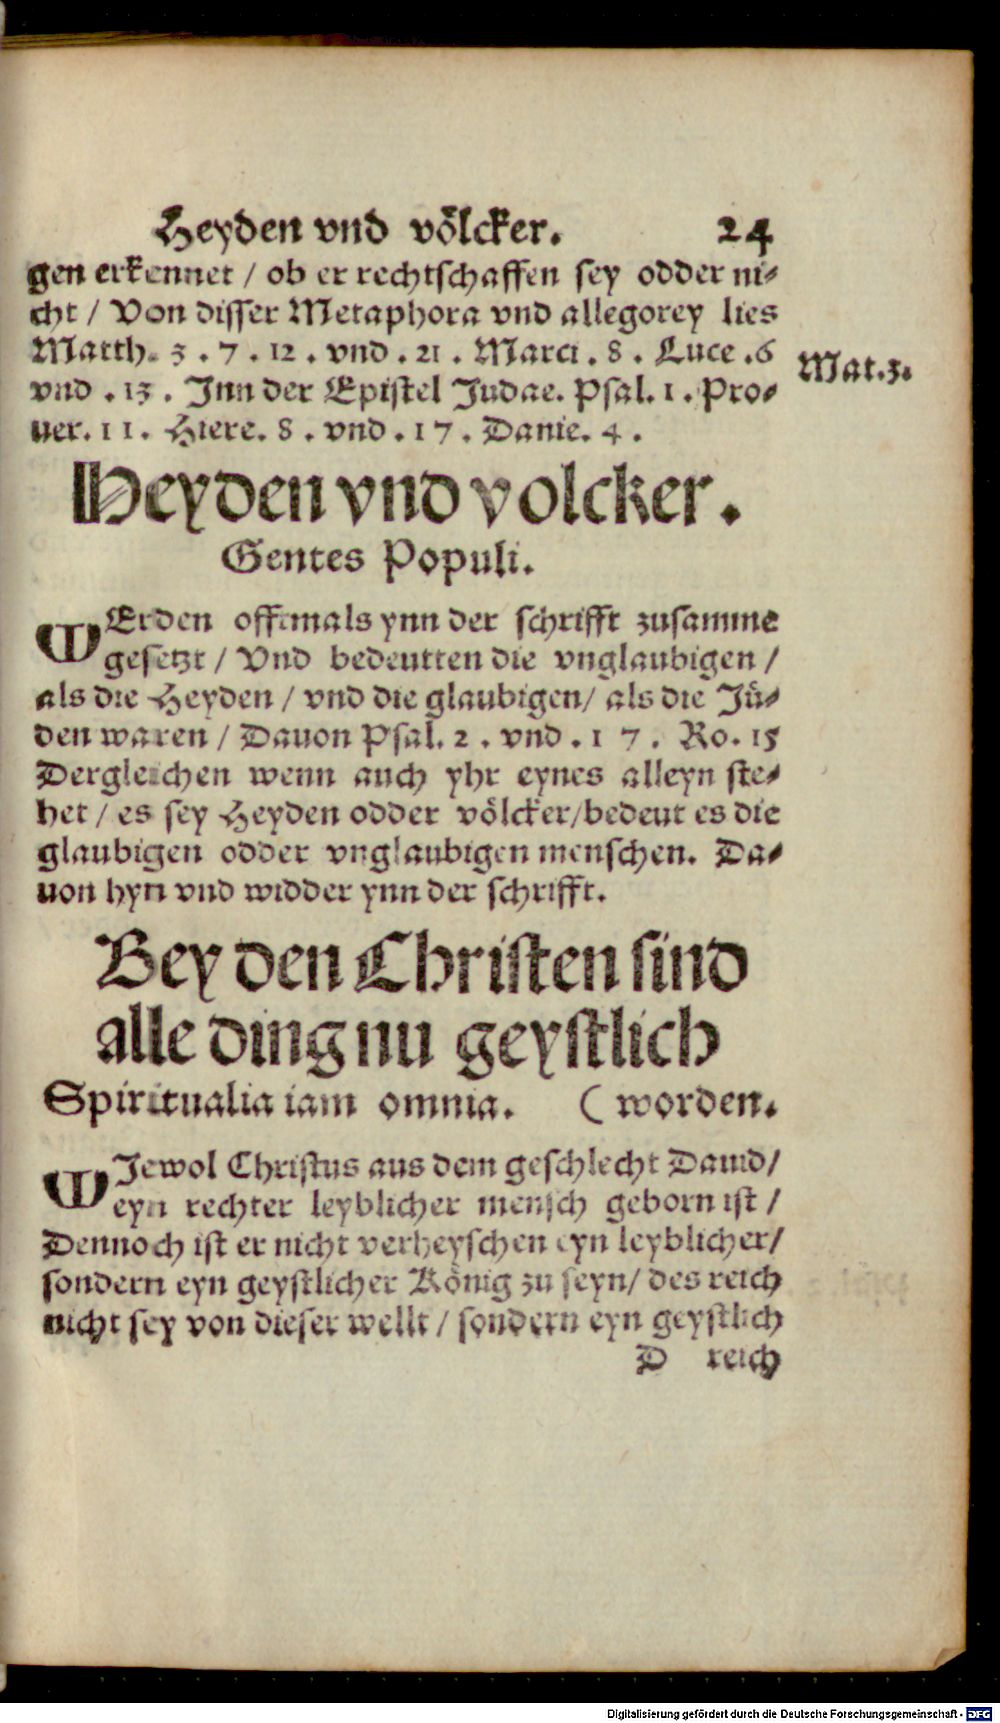 Heyden vnd völcker. 24
gen erkennet / ob er rechtschaffen sey odder ni-
cht / Von disser Metaphora vnd allegorey lies
Matth. 3 . 7 . 12 . vnd . 21 . Marci . 8 . Luce .6
Mat.3.
vnd . 13 . Inn der Epistel Judae. Psal. 1 . Pro-
uer. 11. Hiere. 8 . vnd . 17 . Danie. 4 .
Heyden vnd volcker.
Gentes Populi.
WErden offtmals ynn der schrifft zusamme
gesetzt / Vnd bedeutten die vnglaubigen /
als die Heyden / vnd die glaubigen/ als die Jü-
den waren / Dauon Psal. 2 . vnd . 1 7 . Ro. 15
Dergleichen wenn auch yhr eynes alleyn ste-
het / es sey Heyden odder völcker/bedeut es die
glaubigen odder vnglaubigen menschen. Da-
uon hyn vnd widder ynn der schrifft.
Bey den Christen sind
alle ding nu geystlich
Spiritualia iam omnia. ( worden.
WJewol Christus aus dem geschlecht Dauid/
eyn rechter leyblicher mensch geborn ist /
Dennoch ist er nicht verheyschen eyn leyblicher/
sondern eyn geystlicher König zu seyn/ des reich
nicht sey von dieser wellt / sondern eyn geystlich
D reich
Digitalisierung gefördert durch die Deutsche Forschungsgemeinschaft - DFG